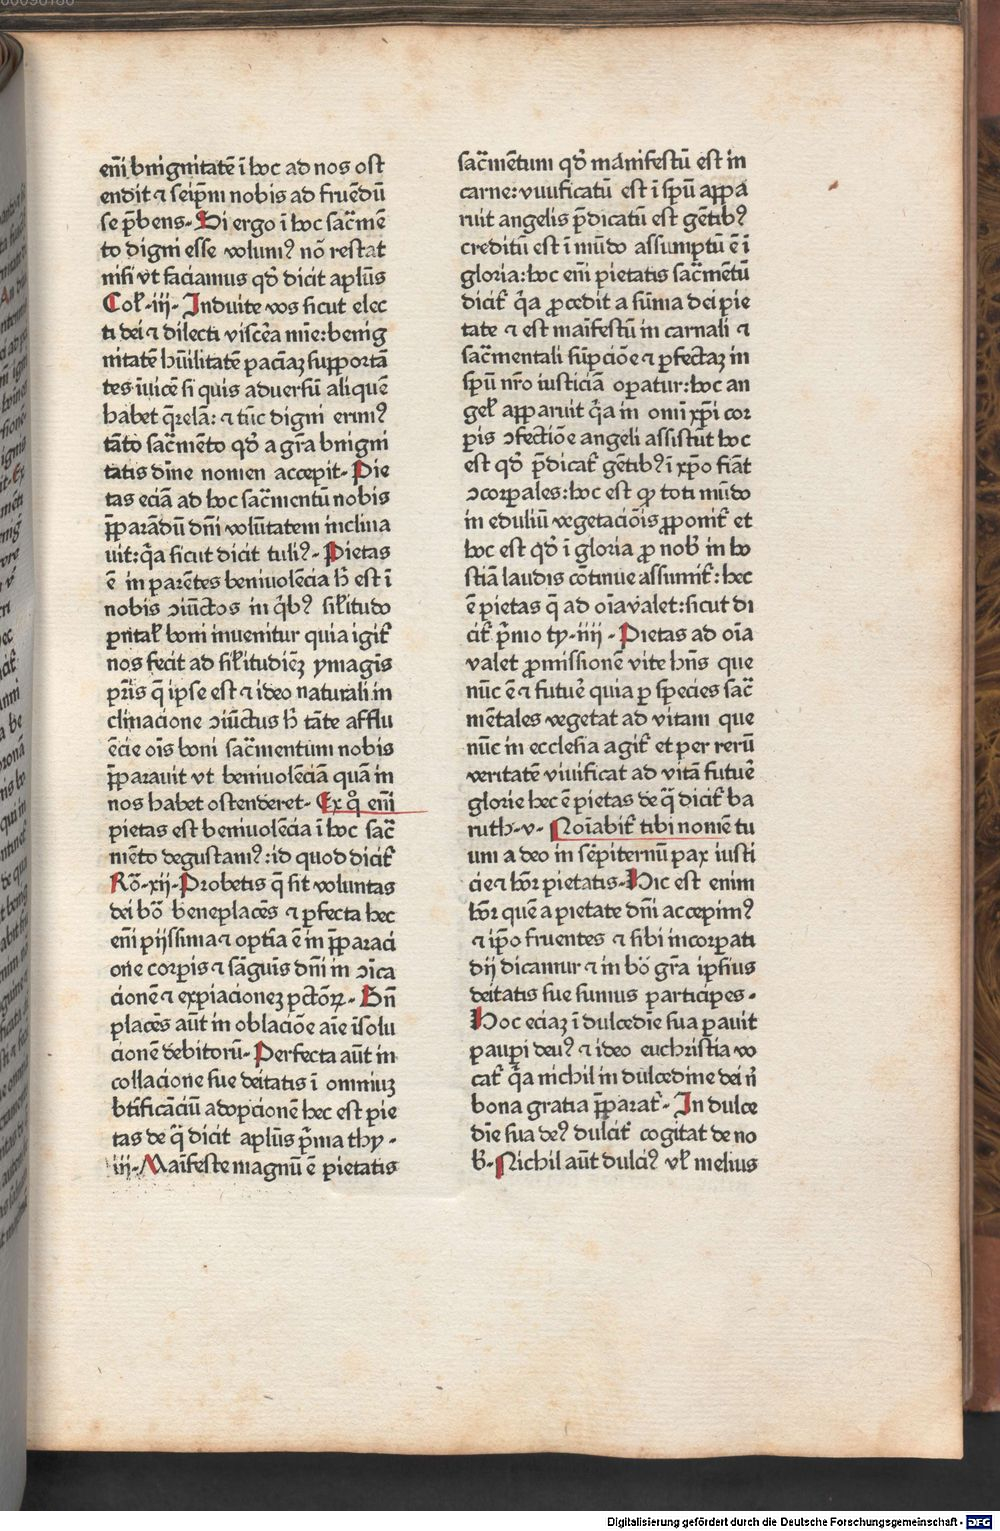 em̄i bnīgnitatē ī hoc ad nos ost
endit ⁊ seip̄m nobis ad fruēdū
se p̄bens. Si ergo ī hoc sac̄mē
to digni esse volumꝰ nō restat
nisi vt faciamus qd̄ dicit apl̄us
Col̄.iii. Induite vos sicut elec
ti dei ⁊ dilecti viscēa mīe: benig
nitatē hūilitatē paciāꝫ supportā
tes īuicē si quis aduersū aliquē
habet q̄relā: ⁊ tūc digni erimꝰ
tāto sac̄mēto qd̄ a gr̄a bnīgni
tatis dīne nomen accepit. Pie
tas eciā ad hoc sac̄mentū nobis
p̄parādū dn̄i volūtatem inclina
uit: q̄a sicut dicit tuliꝰ. Pietas
ē in parētes beniuolēcia h̄ est ī
nobis ↄiūctos in q̄bꝰ sil̄itudo
pnītal̄ boni inuenitur quia igit̄
nos fecit ad sil̄itudiēꝫ ymagīs
pr̄is q̄ ipse est ⁊ ideo naturali in
clinacione ↄiūctus h̄ tāte afflu
ēcie oīs boni sac̄mentum nobis
p̄parauit vt beniuolēciā quā in
nos habet ostenderet. Ex qͦ em̄i
pietas est beniuolēcia ī hoc sac̄
mēto degustamꝰ: id quod dicit̄
Rō.xij. Probetis q̄ sit voluntas
dei bō beneplacēs ⁊ pfecta hec
em̄i pijssima ⁊ optīa ē in p̄paraci
one corpis ⁊ sāguīs dn̄i in ↄīca
cionē ⁊ expiacioneꝫ pctōꝝ. Bn̄
placēs aūt in oblaciōe aīe īsolu
cionē debitorū. Perfecta aūt in
collacione sue deitatis ī omniuꝫ
btīficāciū adopcionē hec est pie
tas de q̄ dicit apl̄us p̄ma thy.
iii. Maīfeste magnū ē pietatis
sac̄mētum qd̄ manifestū est in
carne: viuificatū est ī spū appa
ruit angelis p̄dicatū est gētibꝰ
creditū est ī mūdo assumptū ē ī
gloria: hoc em̄i pietatis sac̄mētū
dicit̄ q̄a pcedit a sūma dei pie
tate ⁊ est maīfestū in carnali ⁊
sac̄mentali sūpciōe ⁊ pfectaꝫ in
spū nr̄o iusticiā opatur: hoc an
gel̄ apparuit q̄a in om̄i xp̄i cor
pis ↄfectiōe angeli assistūt hoc
est qd̄ p̄dicat̄ gētibꝰ ī xp̄o fiāt
ↄcorpales: hoc est ꝓ toti mūdo
in eduliū vegetaciōis ꝓponit̄ et
hoc est qd̄ ī gloria ꝓ nob̄ in ho
stiā laudis cōtinue assumit̄: hec
ē pietas q̄ ad oīa valet: sicut di
cit̄ p̄mo ty.iiii. Pietas ad oīa
valet ꝓmissionē vite hn̄s que
nūc ē ⁊ futuē quia p species sac̄
mētales vegetat ad vitam que
nūc in ecclesia agit̄ et per rerū
veritatē viuificat ad vitā futuē
glorie hec ē pietas de q̄ dicit̄ ba
ruth.v. Noīabit̄ tibi nomē tu
um a deo in sēpiternū pax iusti
cie ⁊ hōr pietatis. Hic est enim
hōr quē a pietate dn̄i accepimꝰ
⁊ ipō fruentes ⁊ sibi incorpati
dij dicamur ⁊ in hō gr̄a ipsius
deitatis sue sumus participes.
Hoc eciaꝫ ī dulcedīe sua pauit
paupi deuꝰ ⁊ ideo euchristia vo
cat̄ q̄a nichil in dulcedine dei n̄
bona gratia p̄parat̄. In dulce
dīe sua deꝰ dulcit̄ cogitat de no
b̄. Nichil aūt dulciꝰ vl̄ melius
Digitalisierung gefördert durch die Deutsche Forschungsgemeinschaft - DFG